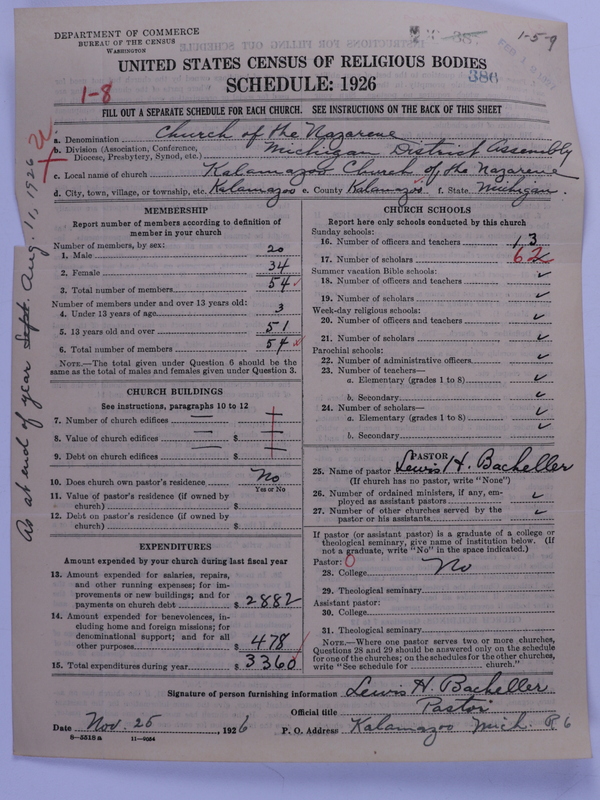 DEPARTMENT OF COMMERCE
BUREAU OF THE CENSUS
WASHINGTON
1-5-9
UNITED STATES CENSUS OF RELIGIOUS BODIES
386
SCHEDULE: 1926
1-8
FILL OUT A SEPARATE SCHEDULE FOR EACH CHURCH. SEE INSTRUCTIONS ON THE BACK OF THIS SHEET
a. Denomination Church of the Nazarene
b. Division (Association, Conference, Diocese, Presbytery, Synod, etc.) Michigan District Assembly
c. Local name of church Kalamazoo Church of the Nazarene
d. City, town, village, or township, etc. Kalamazoo e. County Kalamazoo f. State Michigan.
As at end of year Sept. Aug. 11, 1926
MEMBERSHIP
Report number of members according to definition of
member in your church
Number of members, by sex:
1. Male 20
2. Female 34
3. Total number of members 54
Number of members under and over 13 years old:
4. Under 13 years of age 3
5. 13 years old and over 51
6. Total number of members 54
NOTE.—The total given under Question 6 should be the
same as the total of males and females given under Question 3.
CHURCH BUILDINGS
See instructions, paragraphs 10 to 12
7. Number of church edifices —
8. Value of church edifices — $ —
9. Debt on church edifices — $ —
10. Does church own pastor's residence No
Yes or No
11. Value of pastor's residence (if owned by
church) $
12. Debt on pastor's residence (if owned by
church) $
EXPENDITURES
Amount expended by your church during last fiscal year
13. Amount expended for salaries, repairs,
and other running expenses; for im-
provements or new buildings; and for
payments on church debt $ 2882
14. Amount expended for benevolences, in-
cluding home and foreign missions; for
denominational support; and for all
other purposes $ 478
15. Total expenditures during year $ 3360
CHURCH SCHOOLS
Report here only schools conducted by this church
Sunday schools:
16. Number of officers and teachers 13
17. Number of scholars 62
Summer vacation Bible schools:
18. Number of officers and teachers ✓
19. Number of scholars ✓
Week-day religious schools:
20. Number of officers and teachers ✓
21. Number of scholars ✓
Parochial schools:
22. Number of administrative officers ✓
23. Number of teachers—
a. Elementary (grades 1 to 8) ✓
b. Secondary ✓
24. Number of scholars—
a. Elementary (grades 1 to 8) ✓
b. Secondary ✓
PASTOR
25. Name of pastor Lewis H. Bacheller
(If church has no pastor, write "None")
26. Number of ordained ministers, if any, em-
ployed as assistant pastors ✓
27. Number of other churches served by the
pastor or his assistants ✓
If pastor (or assistant pastor) is a graduate of a college or
theological seminary, give name of institution below. (If
not a graduate, write "No" in the space indicated.)
Pastor: 0
28. College No
29. Theological seminary
Assistant pastor:
30. College
31. Theological seminary
NOTE.—Where one pastor serves two or more churches,
Questions 28 and 29 should be answered only on the schedule
for one of the churches; on the schedules for the other churches,
write "See schedule for church."
Signature of person furnishing information Lewis H. Bacheller
Official title Pastor
Date Nov. 25, 1926 P. O. Address Kalamazoo Mich. R 6
8—5518 a 11—9054